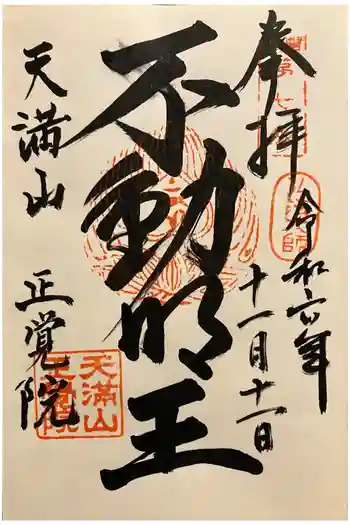 奉拝
令和六年
十一月十一日
不動明王
天満山
正覚院
天満山
正覚院